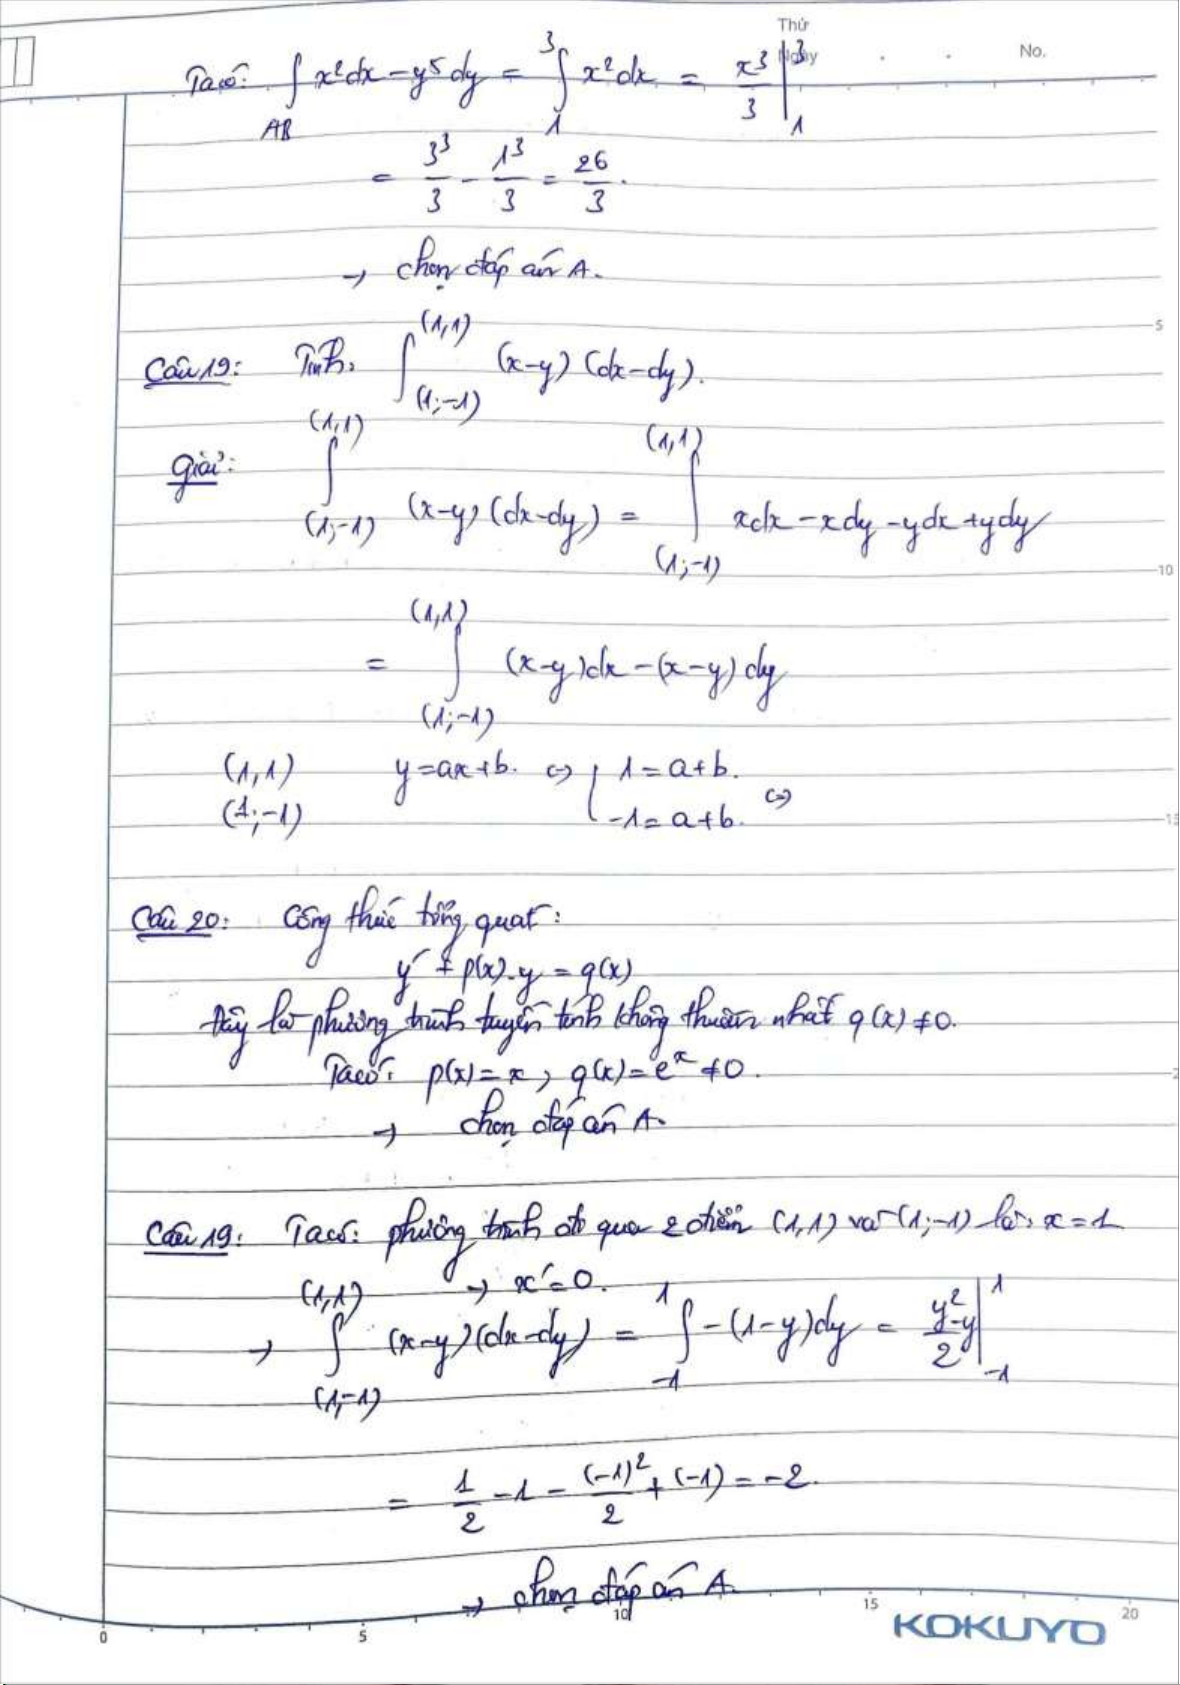 Thứ
Ngày . . No.
Ta có: ∫_{AB} x²dx - y⁵dy = ∫_1^3 x²dx = x³/3 |_1^3
= 3³/3 - 1³/3 = 26/3.
→ chọn đáp án A.
5
Câu 19: Tính: ∫_{(1;-1)}^{(1,1)} (x-y)(dx-dy).
Giải: ∫_{(1;-1)}^{(1,1)} (x-y)(dx-dy) = ∫_{(1;-1)}^{(1,1)} xdx - xdy - ydx + ydy
10
= ∫_{(1;-1)}^{(1,1)} (x-y)dx - (x-y)dy
(1,1) y = ax+b. ⇔ { 1 = a+b.
(1;-1) -1 = a+b. ⇔
15
Câu 20: Công thức tổng quát:
y' + p(x).y = q(x)
Đây là phương trình tuyến tính không thuần nhất q(x) ≠ 0.
Ta có: p(x) = x, q(x) = eˣ ≠ 0.
→ chọn đáp án A.
Câu 19: Ta có: phương trình đt qua 2 điểm (1,1) và (1;-1) là: x = 1
→ x' = 0.
→ ∫_{(1;-1)}^{(1,1)} (x-y)(dx-dy) = ∫_{-1}^1 -(1-y)dy = y²/2 - y |_{-1}^1
= 1/2 - 1 - (-1)²/2 + (-1) = -2.
→ chọn đáp án A.
0 5 10 15 20
KOKUYO